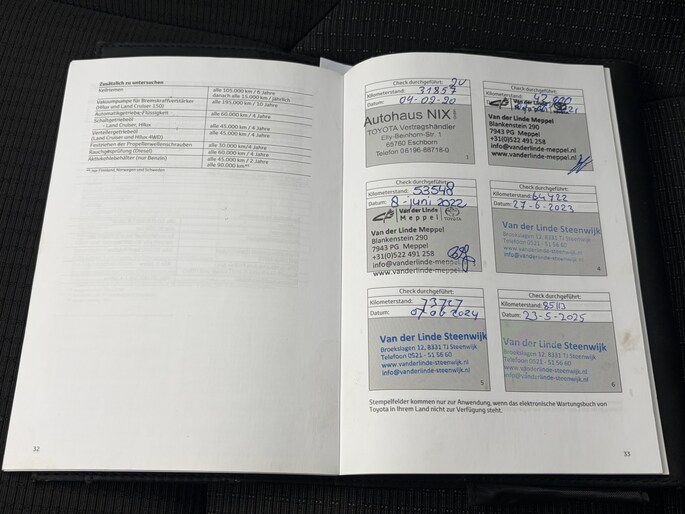 Zusätzlich zu untersuchen
Keilriemen
alle 105.000 km / 6 Jahre
danach alle 15.000 km / jährlich
Vakuumpumpe für Bremskraftverstärker
(Hilux und Land Cruiser 150)
alle 195.000 km / 10 Jahre
Automatikgetriebe-Flüssigkeit
alle 60.000 km / 4 Jahre
Schaltgetriebeöl
- Land Cruiser, Hilux
alle 45.000 km / 4 Jahre
Verteilergetriebeöl
(Land Cruiser und Hilux 4WD)
alle 45.000 km / 4 Jahre
Festziehen der Propellerwellenschrauben
alle 30.000 km/4 Jahre
Rauchgasprüfung (Diesel)
alle 60.000 km / 4 Jahre
Aktivkohlebehälter (nur Benzin)
alle 45.000 km / 2 Jahre
alle 90.000 km**
32
Check durchgeführt:
Kilometerstand: 31857
Datum: 04-02-20
Autohaus NIX
TOYOTA Vertragshändler
Elly-Beinhorn-Str. 1
65760 Eschborn
Telefon 06196-88718-0
1
Check durchgeführt:
Kilometerstand:
2021
Van der Linde Meppel
Blankenstein 290
7943 PG Meppel
+31(0)522 491 258
info@vanderlinde-meppel.nl
www.vanderlinde-meppel.nl
Check durchgeführt:
Kilometerstand: 53548
Datum: 8-juni 2022
Van der Linde
Meppel
TOYOTA
Van der Linde Meppel
Blankenstein 290
7943 PG Meppel
+31(0)522 491 258
info@vanderlinde-meppel.nl
www.vanderlinde-meppel.nl
Check durchgeführt:
Kilometerstand: 64422
Datum: 27-6-2023
Van der Linde Steenwijk
Broekslagen 12, 8331 TJ Steenwijk
Telefoon 0521 - 51 58 60
www.vanderlinde-steenwijk.nl
info@vanderlinde-steenwijk.nl
4
Check durchgeführt:
Kilometerstand: 73727
Datum: 07 06 2024
Van der Linde Steenwijk
Broekslagen 12, 8331 TJ Steenwijk
Telefoon 0521 - 51 58 60
www.vanderlinde-steenwijk.nl
info@vanderlinde-steenwijk.nl
5
Check durchgeführt:
Kilometerstand: 85113
Datum: 23-5-2025
Van der Linde Steenwijk
Broekslagen 12, 8331 TJ Steenwijk
Telefoon 0521 - 51 58 60
www.vanderlinde-steenwijk.nl
info@vanderlinde-steenwijk.nl
6
Stempelfelder kommen nur zur Anwendung, wenn das elektronische Wartungsbuch von
Toyota in Ihrem Land nicht zur Verfügung steht.
33